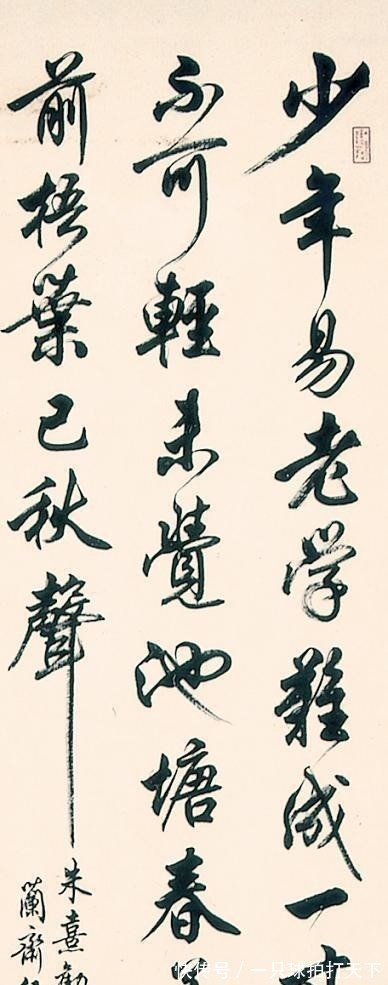 少年易老学難成一
不可輕未覺池塘春
前梧葉已秋聲
朱熹
蘭齋
快传号/一只球拍打天下